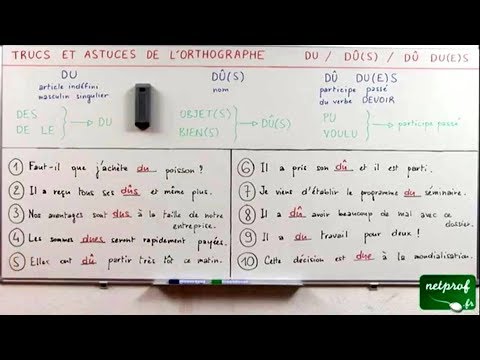 TRUCS ET ASTUCES DE L'ORTHOGRAPHE DU / DÛ(S) / DÛ DU(E)S
DU
article indéfini
masculin singulier
DES
DE LE
→ DU
DÛ(S)
nom
OBJET(S)
BIEN(S)
→ DÛ(S)
DÛ DU(E)S
participe passé
du verbe DEVOIR
PU
VOULU
→ participe passé
1 Faut-il que j'achète du poisson ?
2 Il a reçu tous ses dûs et même plus.
3 Nos avantages sont dus à la taille de notre
entreprise.
4 Les sommes dues seront rapidement payées.
5 Elles ont dû partir très tôt ce matin.
6 Il a pris son dû et il est parti.
7 Je viens d'établir le programme du séminaire.
8 Il a dû avoir beaucoup de mal avec ce
dossier.
9 Il a du travail pour deux !
10 Cette décision est due à la mondialisation.
netprof
.fr